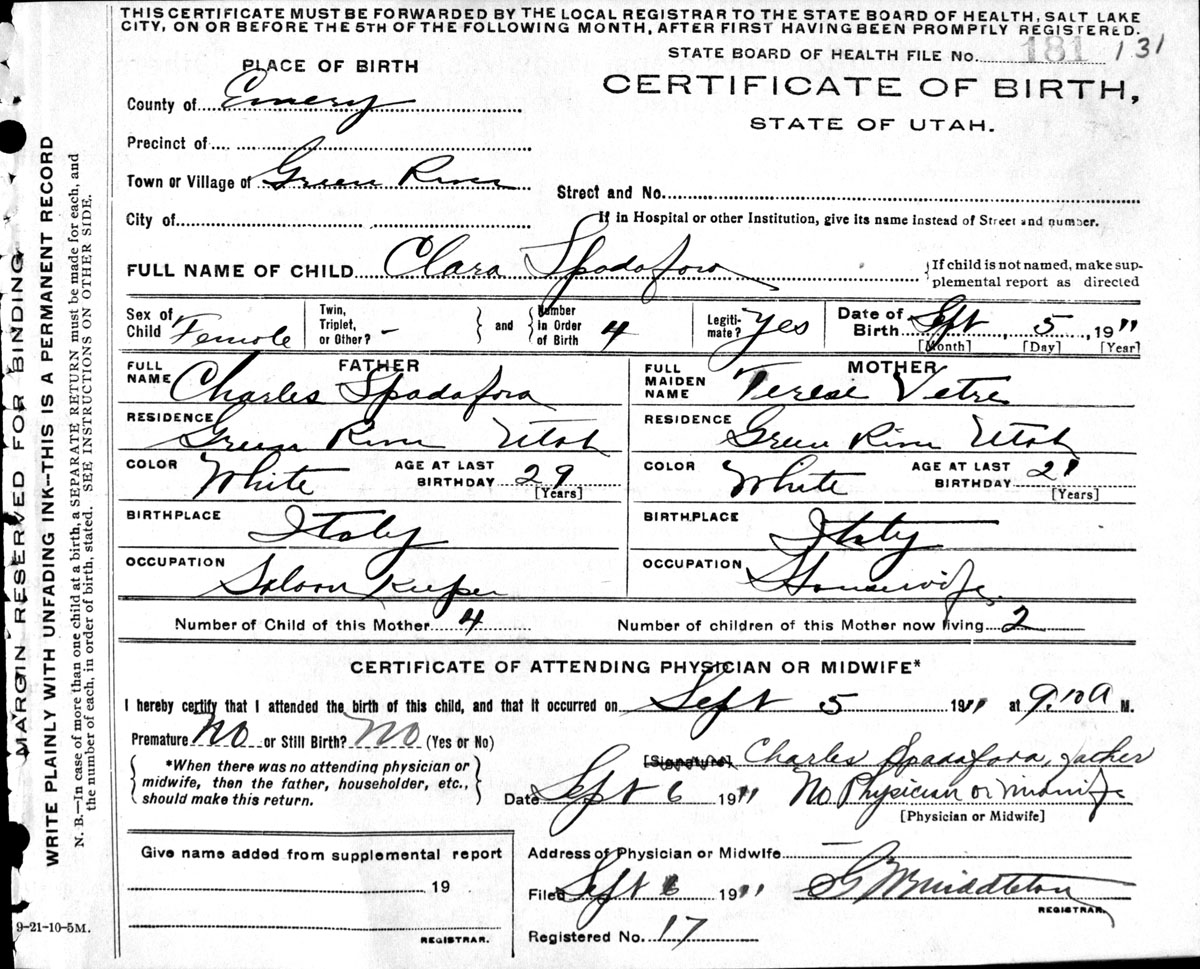 THIS CERTIFICATE MUST BE FORWARDED BY THE LOCAL REGISTRAR TO THE STATE BOARD OF HEALTH, SALT LAKE
CITY, ON OR BEFORE THE 5TH OF THE FOLLOWING MONTH, AFTER FIRST HAVING BEEN PROMPTLY REGISTERED.
STATE BOARD OF HEALTH FILE No. 181 131
PLACE OF BIRTH
CERTIFICATE OF BIRTH,
STATE OF UTAH.
County of Emery
Precinct of
Town or Village of Green River
Street and No.
City of
If in Hospital or other Institution, give its name instead of Street and number.
FULL NAME OF CHILD Clara Spadafora
If child is not named, make sup-
plemental report as directed
Sex of Child Female
Twin, Triplet, or Other? -
and
Number in Order of Birth 4
Legiti-mate? Yes
Date of Birth Sept 5, 1911
[Month] [Day] [Year]
FATHER
FULL NAME Charles Spadafora
MOTHER
FULL MAIDEN NAME Terese Vetre
RESIDENCE Green River Utah
RESIDENCE Green River Utah
COLOR White
AGE AT LAST BIRTHDAY 29
[Years]
COLOR White
AGE AT LAST BIRTHDAY 21
[Years]
BIRTHPLACE Italy
BIRTHPLACE Italy
OCCUPATION Saloon Keeper
OCCUPATION Housewife
Number of Child of this Mother 4
Number of children of this Mother now living 2
CERTIFICATE OF ATTENDING PHYSICIAN OR MIDWIFE*
I hereby certify that I attended the birth of this child, and that it occurred on Sept 5 1911 at 9.10 a M.
Premature No or Still Birth? No (Yes or No)
*When there was no attending physician or
midwife, then the father, householder, etc.,
should make this return.
[Signature] Charles Spadafora, father
Date Sept 6 1911 No Physician or midwife
[Physician or Midwife]
Give name added from supplemental report
19
REGISTRAR.
Address of Physician or Midwife
Filed Sept 6 1911 Middleton
REGISTRAR.
Registered No. 17
9-21-10-5M.
MARGIN RESERVED FOR BINDING
WRITE PLAINLY WITH UNFADING INK--THIS IS A PERMANENT RECORD
N. B.—In case of more than one child at a birth, a SEPARATE RETURN must be made for each, and
the number of each, in order of birth, stated. SEE INSTRUCTIONS ON OTHER SIDE.